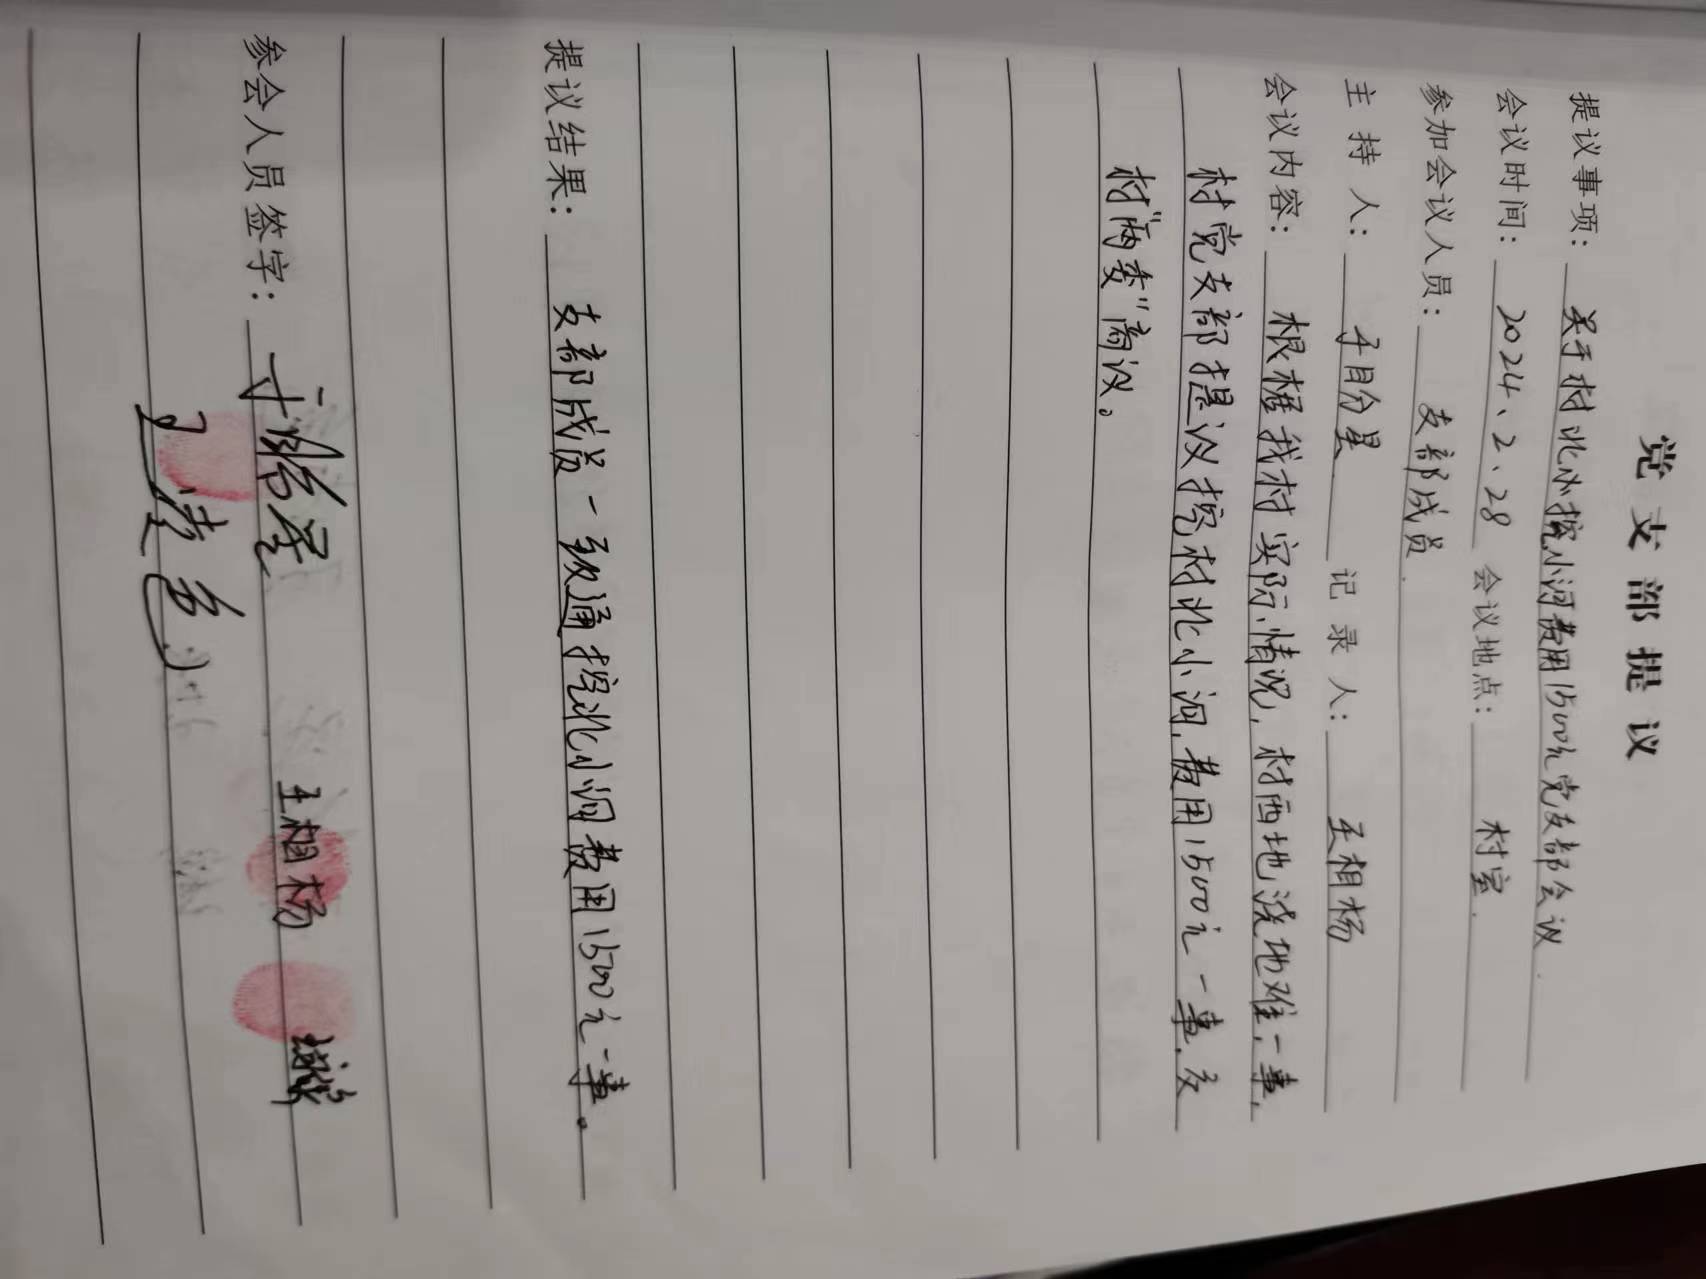 党支部提议
提议事项：关于村北小挖小河费用1500元党支部会议
会议时间：2024、2、28 会议地点：村室
参加会议人员：支部成员
主持人： 记录人：王相杨
会议内容：根据我村实际情况，村西地浇地难一事，
村党支部提议挖村北小河，费用1500元一事，交
村"两委"商议。
提议结果：支部成员一致通挖北小河费用1500元一事。
参会人员签字： 王相杨